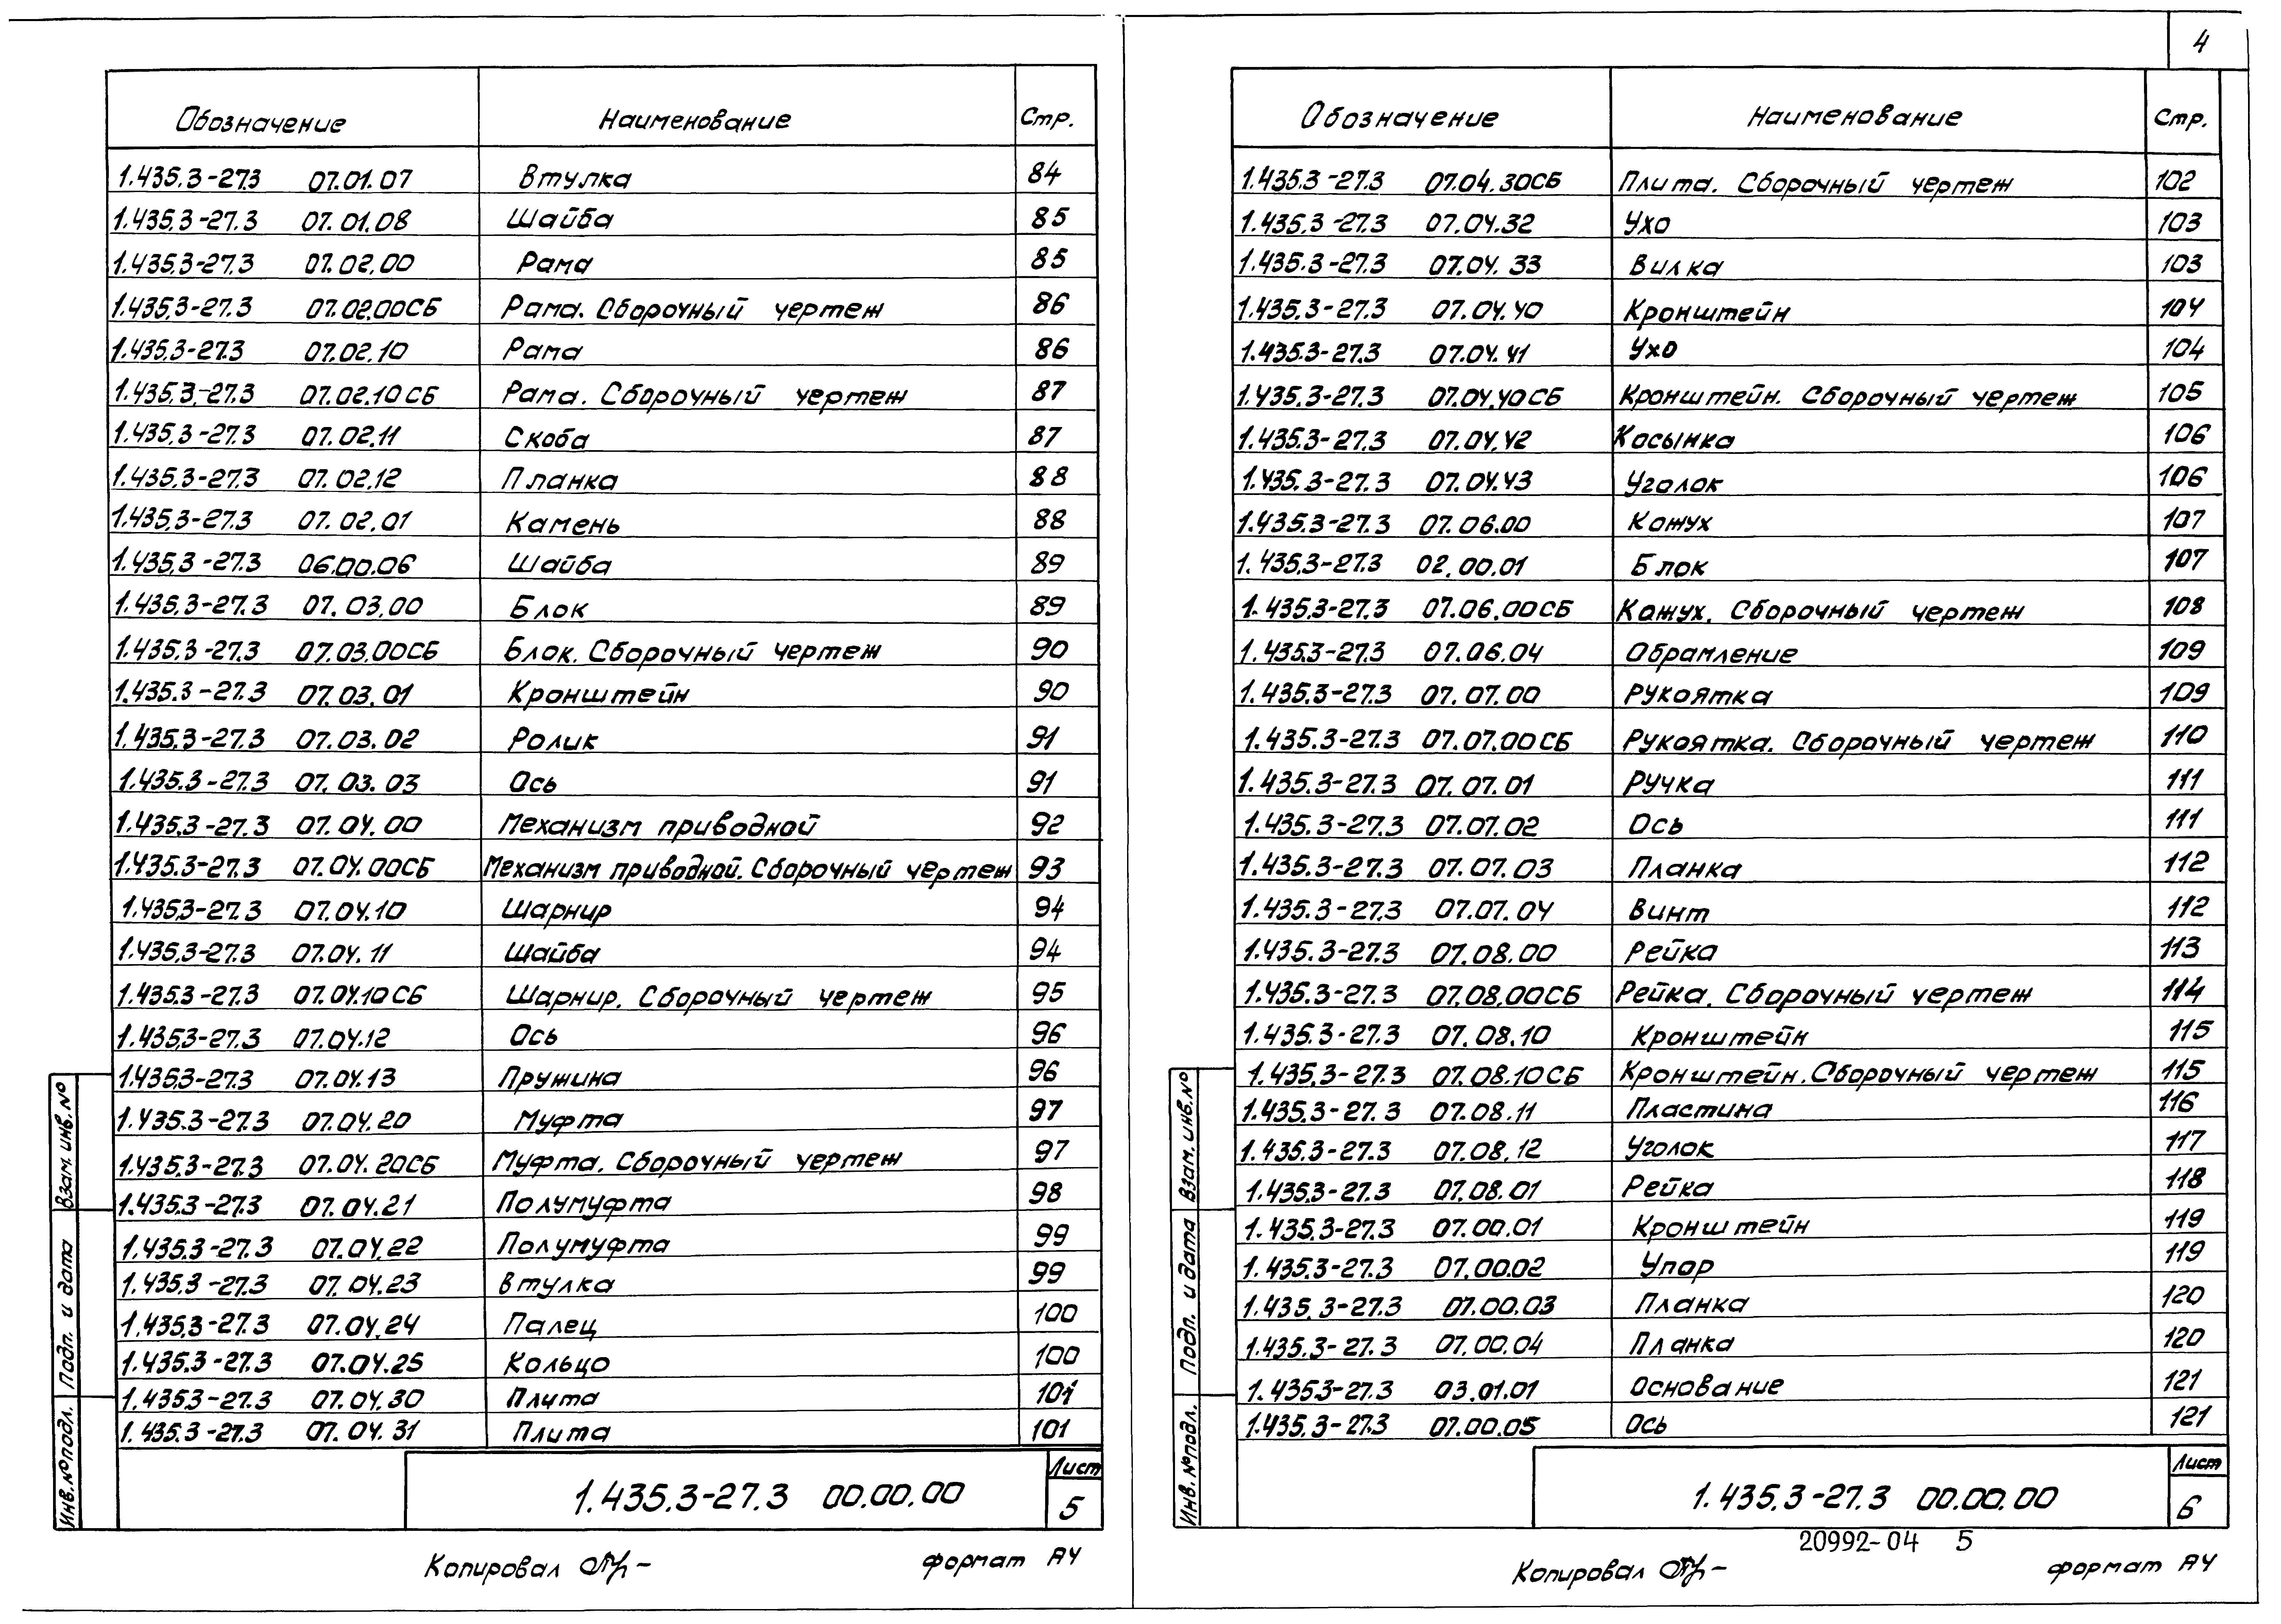 4
Обозначение Наименование Стр.
1.435.3-27.3 07.01.07 Втулка 84
1.435.3-27.3 07.01.08 Шайба 85
1.435.3-27.3 07.02.00 Рама 85
1.435.3-27.3 07.02.00СБ Рама. Сборочный чертеж 86
1.435.3-27.3 07.02.10 Рама 86
1.435.3-27.3 07.02.10СБ Рама. Сборочный чертеж 87
1.435.3-27.3 07.02.11 Скоба 87
1.435.3-27.3 07.02.12 Планка 88
1.435.3-27.3 07.02.01 Камень 88
1.435.3-27.3 06.00.06 Шайба 89
1.435.3-27.3 07.03.00 Блок 89
1.435.3-27.3 07.03.00СБ Блок. Сборочный чертеж 90
1.435.3-27.3 07.03.01 Кронштейн 90
1.435.3-27.3 07.03.02 Ролик 91
1.435.3-27.3 07.03.03 Ось 91
1.435.3-27.3 07.04.00 Механизм приводной 92
1.435.3-27.3 07.04.00СБ Механизм приводной. Сборочный чертеж 93
1.435.3-27.3 07.04.10 Шарнир 94
1.435.3-27.3 07.04.11 Шайба 94
1.435.3-27.3 07.04.10СБ Шарнир. Сборочный чертеж 95
1.435.3-27.3 07.04.12 Ось 96
1.435.3-27.3 07.04.13 Пружина 96
1.435.3-27.3 07.04.20 Муфта 97
1.435.3-27.3 07.04.20СБ Муфта. Сборочный чертеж 97
1.435.3-27.3 07.04.21 Полумуфта 98
1.435.3-27.3 07.04.22 Полумуфта 99
1.435.3-27.3 07.04.23 Втулка 99
1.435.3-27.3 07.04.24 Палец 100
1.435.3-27.3 07.04.25 Кольцо 100
1.435.3-27.3 07.04.30 Плита 101
1.435.3-27.3 07.04.31 Плита 101
Взам. инв. №
Подп. и дата
Инв. № подл.
1.435.3-27.3 00.00.00
Лист
5
Копировал
формат А4
Обозначение Наименование Стр.
1.435.3-27.3 07.04.30СБ Плита. Сборочный чертеж 102
1.435.3-27.3 07.04.32 Ухо 103
1.435.3-27.3 07.04.33 Вилка 103
1.435.3-27.3 07.04.40 Кронштейн 104
1.435.3-27.3 07.04.41 Ухо 104
1.435.3-27.3 07.04.40СБ Кронштейн. Сборочный чертеж 105
1.435.3-27.3 07.04.42 Косынка 106
1.435.3-27.3 07.04.43 Уголок 106
1.435.3-27.3 07.06.00 Кожух 107
1.435.3-27.3 02.00.01 Блок 107
1.435.3-27.3 07.06.00СБ Кажух. Сборочный чертеж 108
1.435.3-27.3 07.06.04 Обрамление 109
1.435.3-27.3 07.07.00 Рукоятка 109
1.435.3-27.3 07.07.00СБ Рукоятка. Сборочный чертеж 110
1.435.3-27.3 07.07.01 Ручка 111
1.435.3-27.3 07.07.02 Ось 111
1.435.3-27.3 07.07.03 Планка 112
1.435.3-27.3 07.07.04 Винт 112
1.435.3-27.3 07.08.00 Рейка 113
1.435.3-27.3 07.08.00СБ Рейка. Сборочный чертеж 114
1.435.3-27.3 07.08.10 Кронштейн 115
1.435.3-27.3 07.08.10СБ Кронштейн. Сборочный чертеж 115
1.435.3-27.3 07.08.11 Пластина 116
1.435.3-27.3 07.08.12 Уголок 117
1.435.3-27.3 07.08.01 Рейка 118
1.435.3-27.3 07.00.01 Кронштейн 119
1.435.3-27.3 07.00.02 Упор 119
1.435.3-27.3 07.00.03 Планка 120
1.435.3-27.3 07.00.04 Планка 120
1.435.3-27.3 03.01.01 Основание 121
1.435.3-27.3 07.00.05 Ось 121
Взам. инв. №
Подп. и дата
Инв. № подл.
1.435.3-27.3 00.00.00
Лист
6
20992-04 5
Копировал
формат А4